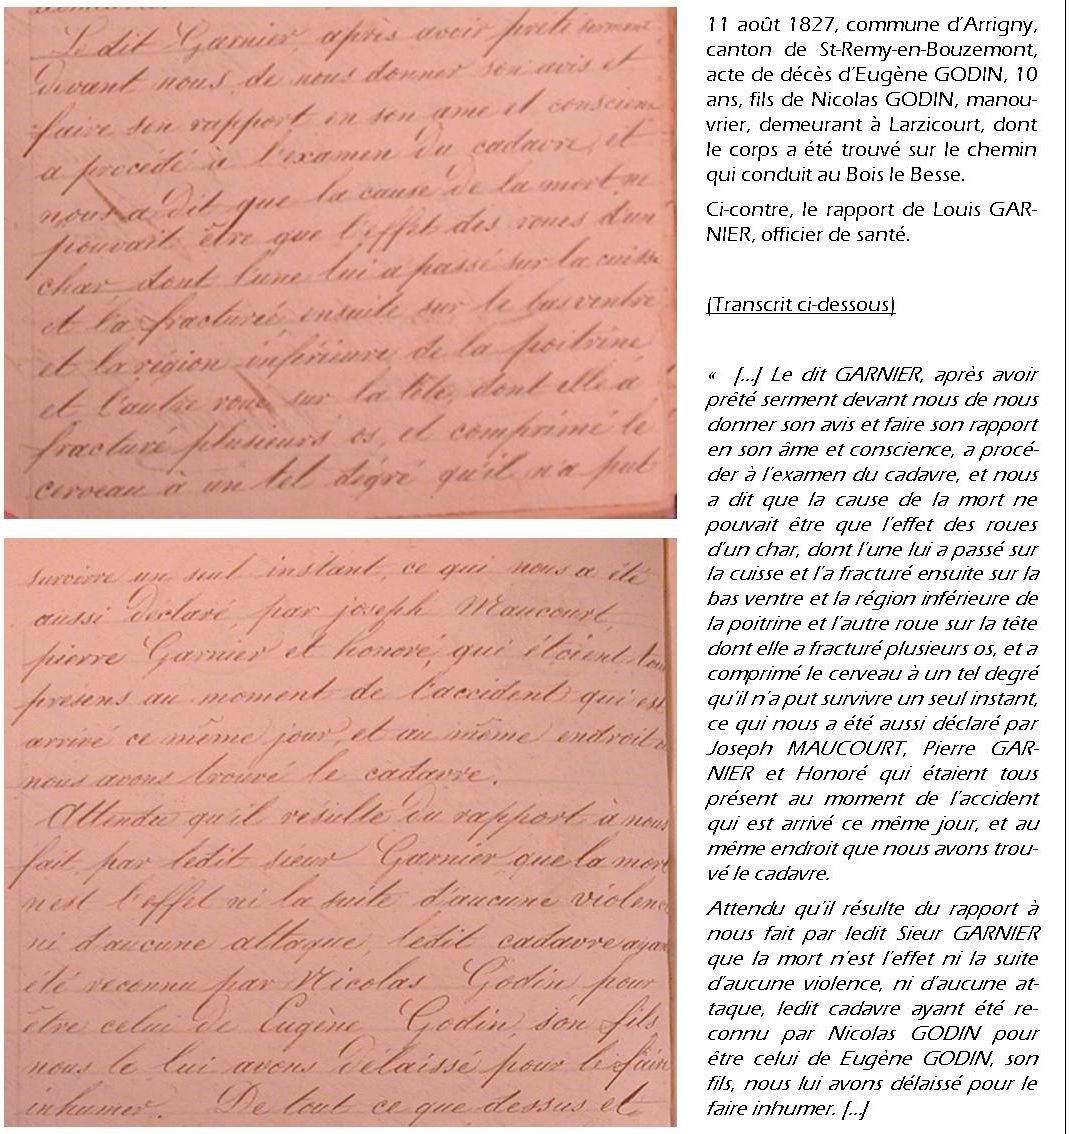 Le dit Garnier, après avoir preté serment
devant nous de nous donner son avis et
faire son rapport en son ame et conscience
a procédé à l'examen du cadavre, et
nous a dit que la cause de la mort ne
pouvait être que l'effet des roues d'un
char dont l'une lui a passé sur la cuisse
et l'a fracturée ensuite sur le bas ventre
et la région inférieure de la poitrine
et l'autre roue sur la tête, dont elle a
fracturé plusieurs os, et comprimé le
cerveau à un tel dégré qu'il n'a put
survivre un seul instant, ce qui nous a été
aussi déclaré par joseph Maucourt
pierre Garnier et honoré, qui étoient tous
presens au moment de l'accident qui est
arrivé ce même jour, et au même endroit
nous avons trouvé le cadavre.
Attendu qu'il résulte du rapport à nous
fait par ledit sieur Garnier que la mort
n'est l'effet ni la suite d'aucune violence
ni d'aucune attaque, ledit cadavre ayant
été reconnu par Nicolas Godin pour
être celui de Eugène Godin, son fils
nous le lui avons délaissé pour le faire
inhumer. De tout ce que dessus et
11 août 1827, commune d'Arrigny,
canton de St-Remy-en-Bouzemont,
acte de décès d'Eugène GODIN, 10
ans, fils de Nicolas GODIN, manou-
vrier, demeurant à Larzicourt, dont
le corps a été trouvé sur le chemin
qui conduit au Bois le Besse.
Ci-contre, le rapport de Louis GAR-
NIER, officier de santé.
(Transcrit ci-dessous)
« [...] Le dit GARNIER, après avoir
prêté serment devant nous de nous
donner son avis et faire son rapport
en son âme et conscience, a procé-
der à l'examen du cadavre, et nous
a dit que la cause de la mort ne
pouvait être que l'effet des roues
d'un char, dont l'une lui a passé sur
la cuisse et l'a fracturé ensuite sur la
bas ventre et la région inférieure de
la poitrine et l'autre roue sur la tête
dont elle a fracturé plusieurs os, et a
comprimé le cerveau à un tel degré
qu'il n'a put survivre un seul instant,
ce qui nous a été aussi déclaré par
Joseph MAUCOURT, Pierre GAR-
NIER et Honoré qui étaient tous
présent au moment de l'accident
qui est arrivé ce même jour, et au
même endroit que nous avons trou-
vé le cadavre.
Attendu qu'il résulte du rapport à
nous fait par ledit Sieur GARNIER
que la mort n'est l'effet ni la suite
d'aucune violence, ni d'aucune at-
taque, ledit cadavre ayant été re-
connu par Nicolas GODIN pour
être celui de Eugène GODIN, son
fils, nous lui avons délaissé pour le
faire inhumer. [...]